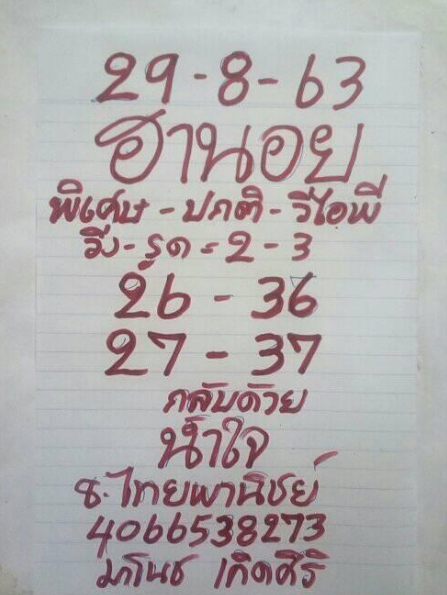 29-8-63
ฮานอย
พิเศษ-ปกติ-วีไอพี
วิ่ง-รูด=2-3
26-36
27-37
กลับด้วย
น้ำใจ
ธ.ไทยพานิชย์
4066538273
มาโนช เกิดศิริ